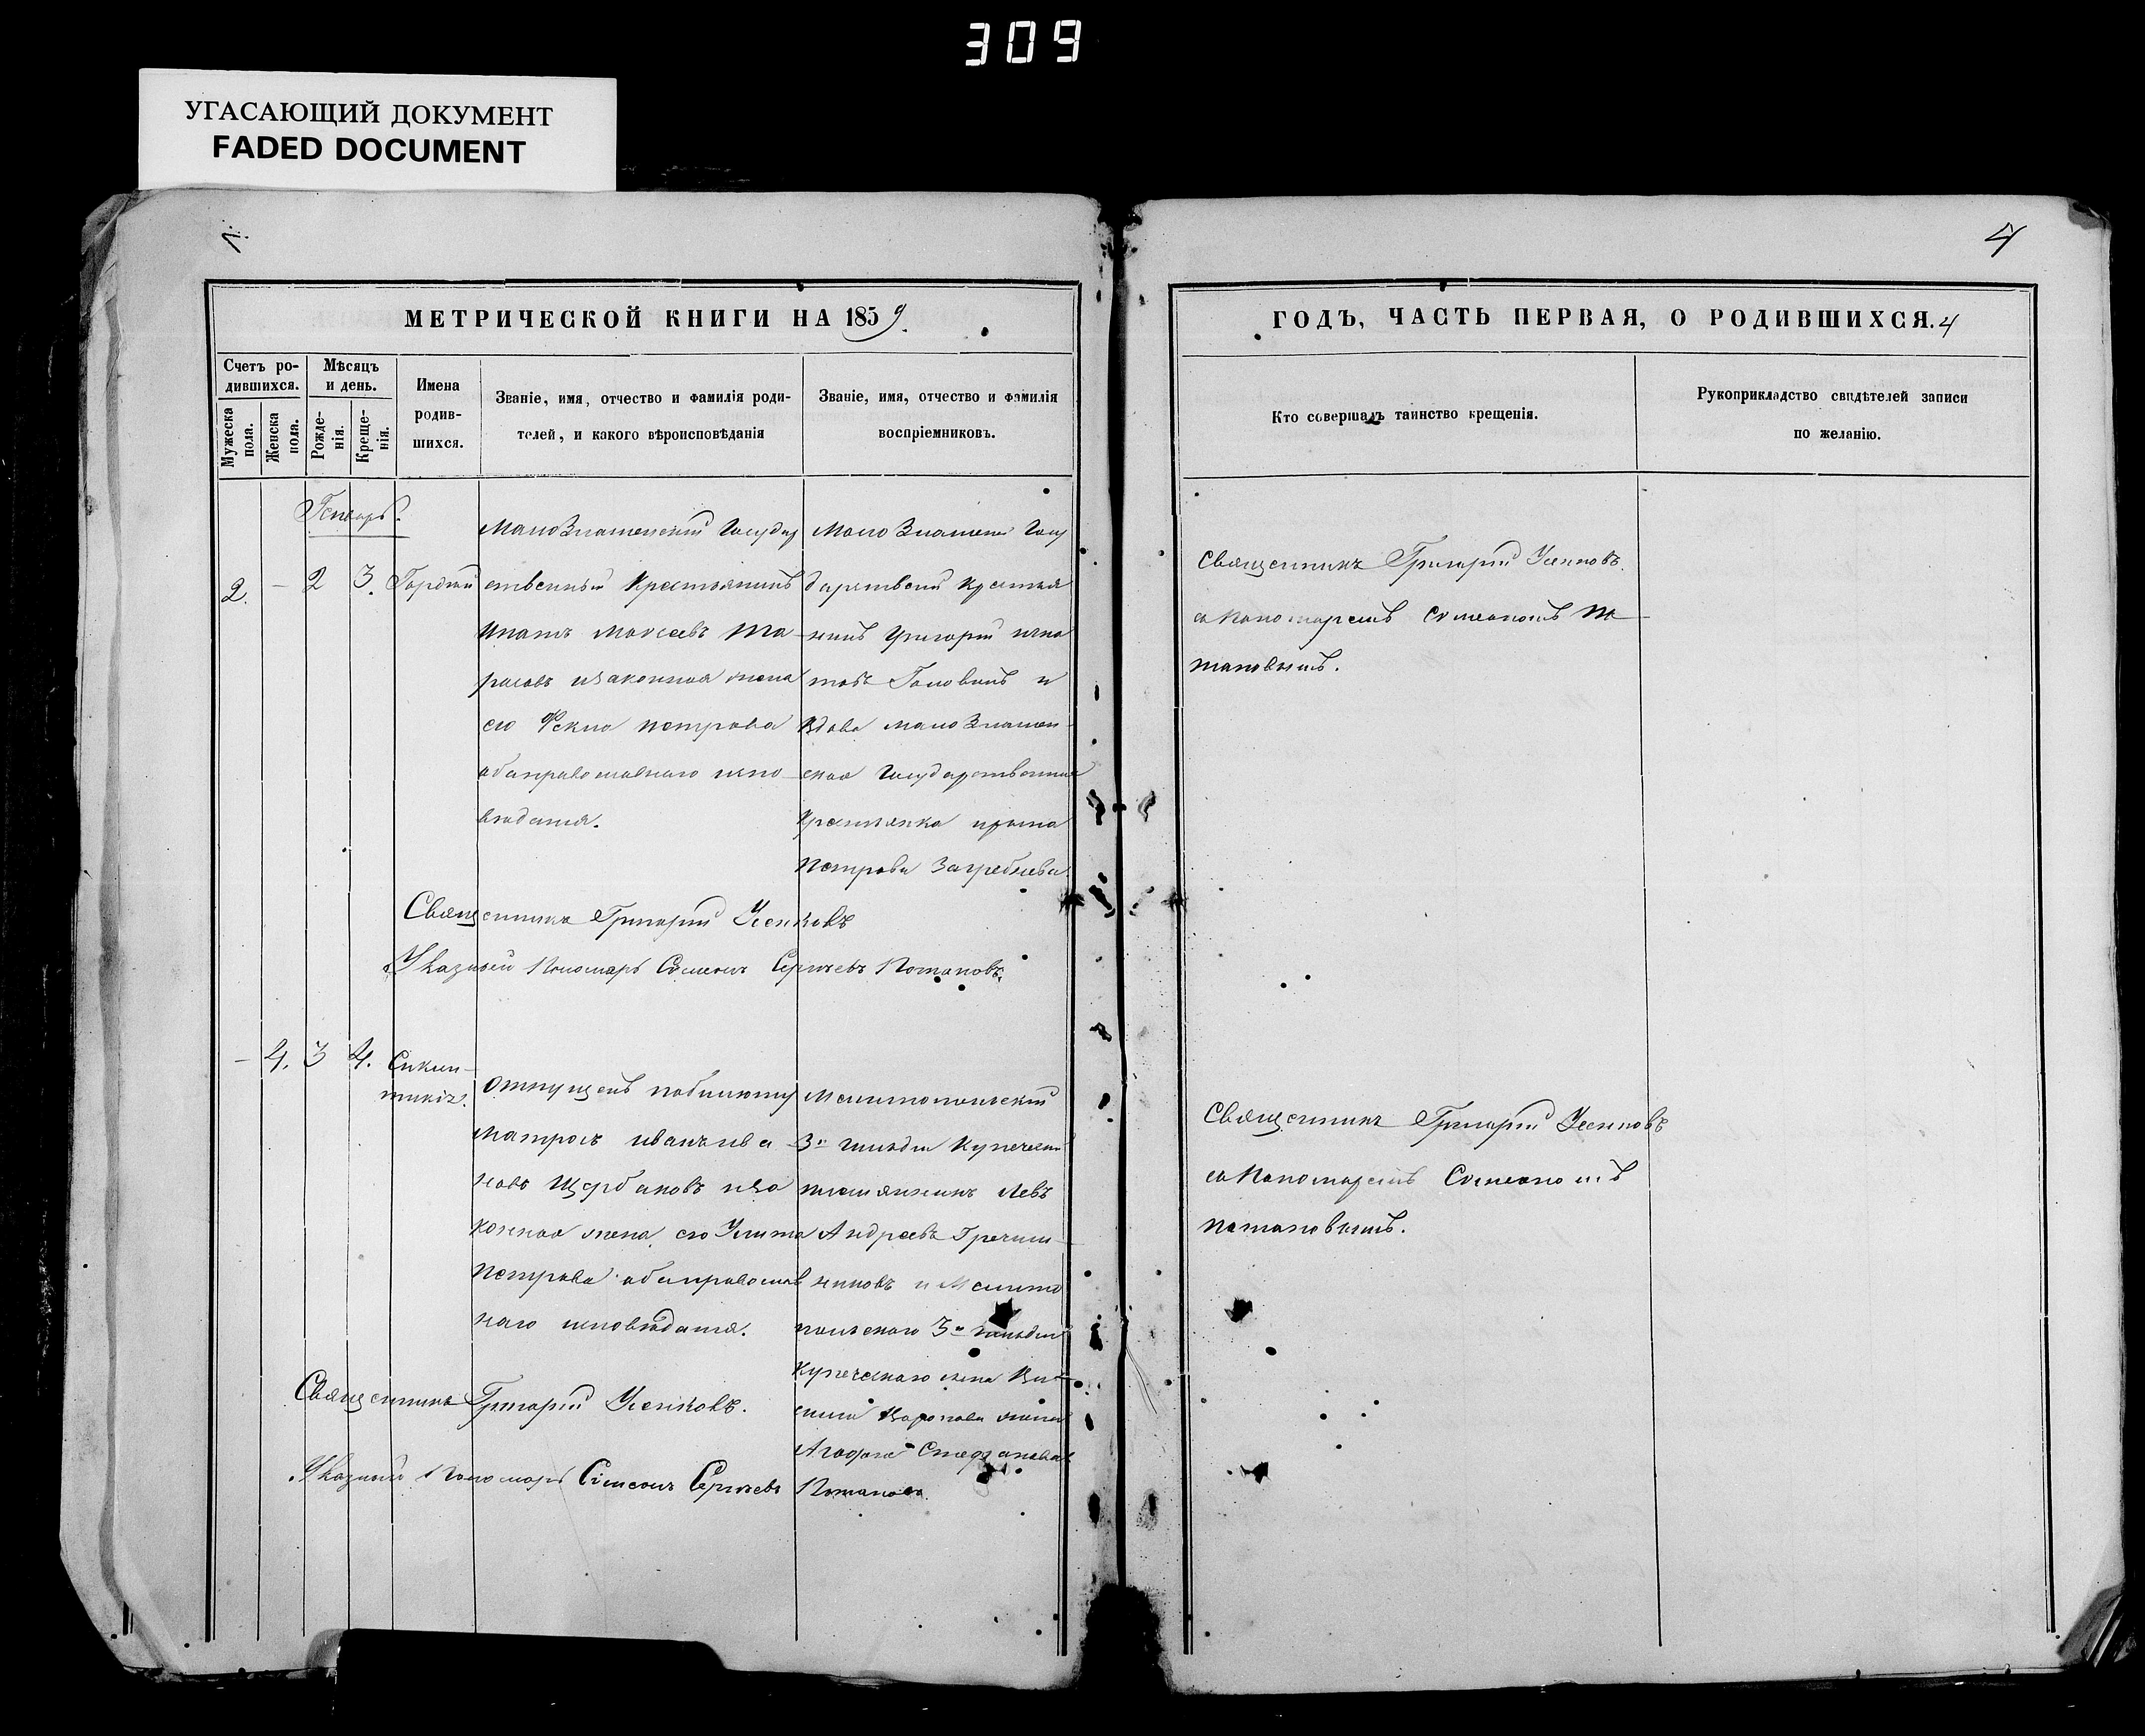 309
УГАСАЮЩИЙ ДОКУМЕНТ
FADED DOCUMENT
4
МЕТРИЧЕСКОЙ КНИГИ НА 1859
Счетъ ро-
дившихся.
Мужеска
пола.
Женска
пола.
Мѣсяцъ
и день.
Рожде-
нія.
Креще-
нія.
Имена
родив-
шихся.
Званіе, имя, отчество и фамилія роди-
телей, и какого вѣроисповѣданія
Званіе, имя, отчество и фамилія
воспріемниковъ.
Генварь.
2. - 2 3. Гордѣй
МалоЗнаменскій Государ
ственный Крестьянинъ
Ипатъ Моисеевъ Та-
расовъ изаконная жена
его Фекла петрова
обаправославнаго испо-
вѣданія.
Мало Знаменс Госу
дарствен Крестья
нинъ Григорій
Головинъ и
Вдова мало Знамен-
ская Государственная
Крестьянка
Петрова Загребнева
Священникъ Григорій
Указный Пономарь Симеонъ Сергѣевъ Потаповъ.
- 4. 3 4. Синкли-
тикія.
отпущенъ
матросъ иванъ ива-
новъ Щербаковъ иза
конная жена его Улита
Петрова обаправослав
наго исповѣданія.
Мелитопольскій
3й гильдіи Купечески
племянникъ Левъ
Андреевъ Гречиш-
никовъ и Мелито
польскаго 3й гильдіи
Купеческаго сына Ва-
силія жена
Агафія Стефановна
Священникъ Григорій
Указный Пономарь Симеонъ Сергѣевъ Потаповъ
4
ГОДЪ, ЧАСТЬ ПЕРВАЯ, О РОДИВШИХСЯ. 4
Кто совершалъ таинство крещенія.
Рукоприкладство свидѣтелей записи
по желанію.
Священникъ Григорій
съ Пономаремъ Симеономъ По-
таповымъ.
Священникъ Григорій
съ Пономаремъ Симеономъ
потаповымъ.